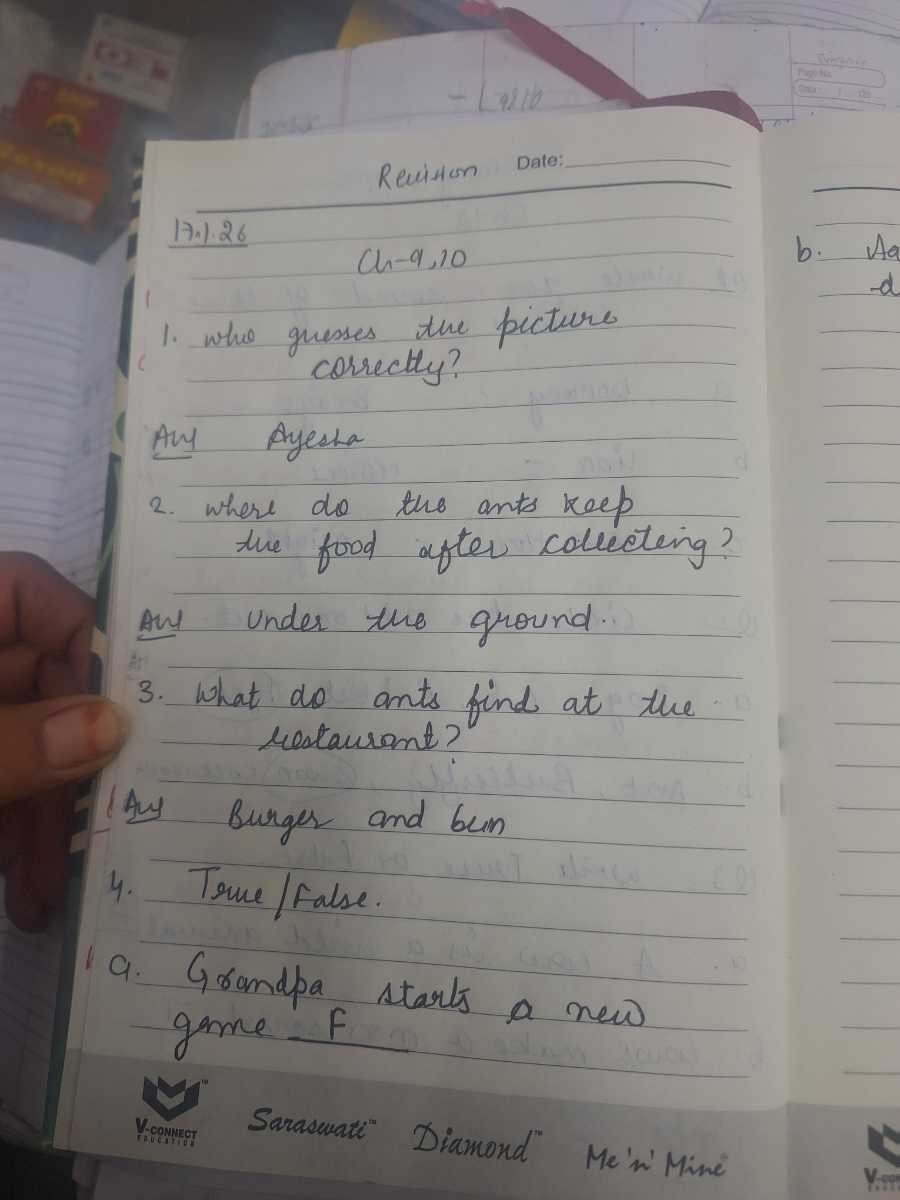 Revision Date:
17.1.26
Ch-9,10
1. who guesses the picture
correctly?
Ans Ayesha
2. where do the ants keep
the food after collecteing?
Ans Under the ground.
3. What do ants find at the
restaurant?
Ans Burger and bun
4. True/False.
a. Grandpa starts a new
game F
V-CONNECT
EDUCATION
Saraswati™ Diamond™ Me 'n' Mine
b. Aa
-d
Page No.
Date: